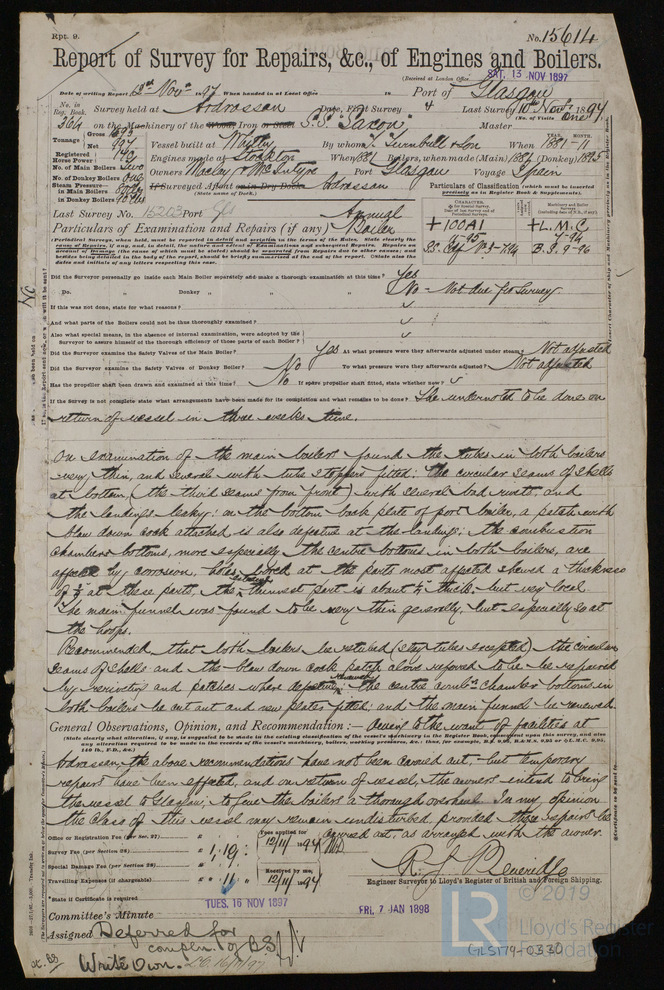 Rpt. 9.
No. 15614
Report of Survey for Repairs, &c., of Engines and Boilers.
(Received at London Office SAT. 13 NOV 1897
Date of writing Report 12th Novr 1897 When handed in at Local Office Port of Glasgow
No. in Reg. Book. Survey held at Ardrossan Date, First Survey Last Survey 10th Novr 1897
(No. of Visits One)
364 on the Machinery of the Wood, Iron or Steel S.S. "Saxon" Master
Tonnage Gross 1595
Net 997
Vessel built at Whitby By whom T. Turnbull & Son When 1881-11
YEAR. MONTH.
Registered Horse Power 149
Engines made at Stockton When 1881 Boilers, when made (Main) 1881 (Donkey) 1895
No. of Main Boilers Two
No. of Donkey Boilers One
Owners Maclay & McIntyre Port Glasgow Voyage Spain
Steam Pressure—
in Main Boilers
in Donkey Boilers
If Surveyed Afloat or in Dry Dock Ardrossan
(State name of Dock.)
Particulars of Classification (which must be inserted precisely as in Register Book & Supplements).
Last Survey No. 15263 Port Annual
Particulars of Examination and Repairs (if any) Boiler
+100A1 + L.M.C.
B.S. 9-96
Did the Surveyor personally go inside each Main Boiler separately and make a thorough examination at this time? Yes
Do. Donkey " " " No – Not due for Survey
If this was not done, state for what reasons?
And what parts of the Boilers could not be thus thoroughly examined?
Also what special means, in the absence of internal examination, were adopted by the Surveyor to assure himself of the thorough efficiency of those parts of each Boiler?
Did the Surveyor examine the Safety Valves of the Main Boiler? Yes At what pressure were they afterwards adjusted under steam? Not adjusted
Did the Surveyor examine the Safety Valves of Donkey Boiler? No To what pressure were they afterwards adjusted? Not adjusted
Has the propeller shaft been drawn and examined at this time? No If spare propeller shaft fitted, state whether new?
If the Survey is not complete state what arrangements have been made for its completion and what remains to be done? The undernoted to be done on
return of vessel in three weeks time.
On examination of the main boilers found the tubes in both boilers
very thin, and several with tube stoppers fitted: the circular seams of shells
at bottom, (the third seams from front) with several bad rivets, and
the landings leaky: on the bottom back plate of port boiler, a patch with
blow down cock attached is also defective at the landings; the combustion
chambers bottoms, more especially the centre bottoms in both boilers, are
affected by corrosion, holes bored at the parts most affected shewed a thickness
of at these parts, the thinnest part is about thick, but very local.
The main funnel was found to be very thin generally, but especially so at
the hoops.
Recommended that both boilers be retubed (stay tubes excepted) the circular
seams of shells and the blow down cock patch above referred to be be repaired
by rerivetting and patches where defective renewed, the centre combn chamber bottoms in
both boilers be cut out and new plates fitted; and the main funnel be renewed.
General Observations, Opinion, and Recommendation:— Owing to the want of facilities at
(State clearly what alteration, if any, is suggested to be made in the existing classification of the vessel's machinery in the Register Book, consequent upon this survey, and also any alteration required to be made in the records of the vessel's machinery, boilers, working pressure, &c.
Ardrossan, the above recommendations have not been carried out, but temporary
repairs have been effected, and on return of vessel, the owners intend to bring
the vessel to Glasgow, to give the boilers a thorough overhaul. In my opinion
the class of this vessel may remain undisturbed provided these repairs be
carried out, as arranged with the owner.
Office or Registration Fee (per Sec. 27) £
Survey Fee (per Section 28) £ 1.19:
Special Damage Fee (per Section 28) £
Travelling Expenses (if chargeable) £ : 11
Fees applied for 12/11/1897
Received by me, 12/11/1897
R. J. Beveridge
Engineer Surveyor to Lloyd's Register of British and Foreign Shipping.
State if Certificate is required
Committee's Minute TUES. 16 NOV 1897 FRI. 7 JAN 1898
Assigned Deferred for
complen. of BS
Write Own.
© 2019
LR
Lloyd's Register
Foundation
GLS179-0330